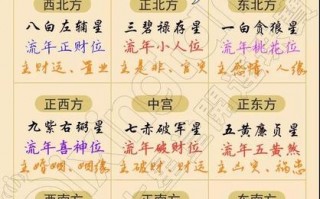 西北方
八白左辅星
流年正财位
主财运、置业
正北方
三碧禄存星
流年小人位
主是非、官灾
东北方
一白贪狼星
流年桃花位
主感情、人缘
正西方
九紫右弼星
流年喜神位
主婚姻、姻缘
中宫
七赤破军星
流年破财位
主破财、财运
正东方
五黄廉贞星
流年五黄煞
主凶灾、祸患
西南方
正南方
东南方